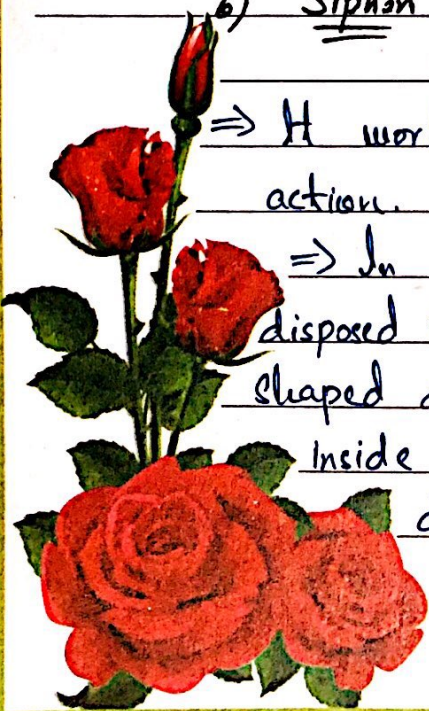 6) Siphon
⇒ It wor
action.
⇒ In
disposed
shaped
Inside